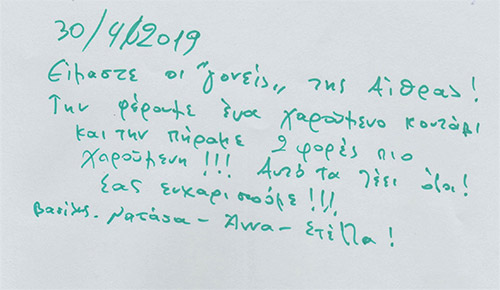 30/4/2019
Είμαστε οι "γονείς" της Αίθρας!
Την φέραμε ένα χαρούμενο κουτάβι
και την πήραμε 2 φορές πιο
χαρούμενη!!! Αυτό τα λέει όλα!
Σας ευχαριστούμε!!!
Βασίλης - Νατάσα - Άννα - Στέλλα!